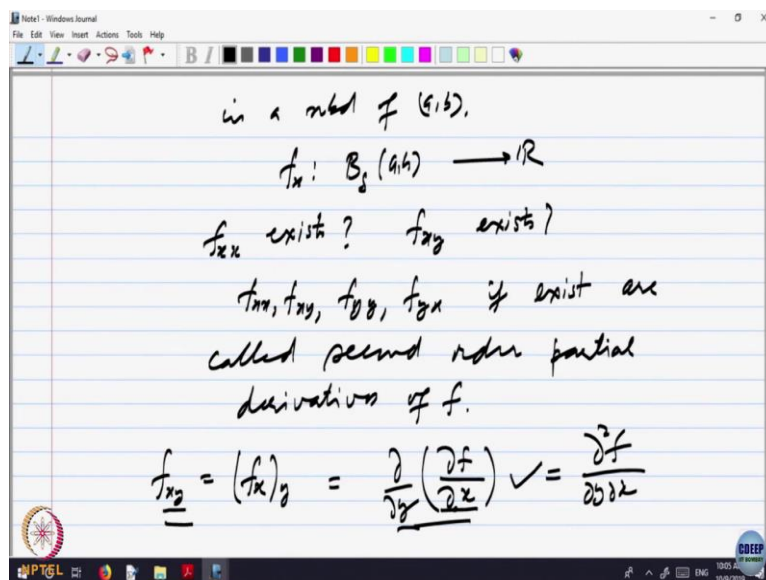 Note1 - Windows Journal
File Edit View Insert Actions Tools Help
B I
in a nbd of (a,b).
f_x : B_δ (a,b) ⟶ ℝ
f_xx exist? f_xy exists?
f_xx, f_xy, f_yy, f_yx if exist are
called second order partial
derivatives of f.
f_xy = (f_x)_y = ∂/∂y (∂f/∂x) ✓ = ∂²f/∂y∂x
NPTEL
CDEEP
IIT BOMBAY
ENG